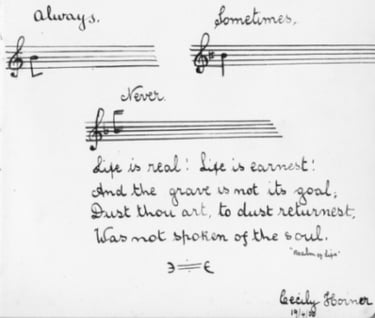 Always.
Sometimes.
Never.
Life is real! Life is earnest!
And the grave is not its goal;
Dust thou art, to dust returnest,
Was not spoken of the soul.
"Psalm of Life"
Cecily Horner